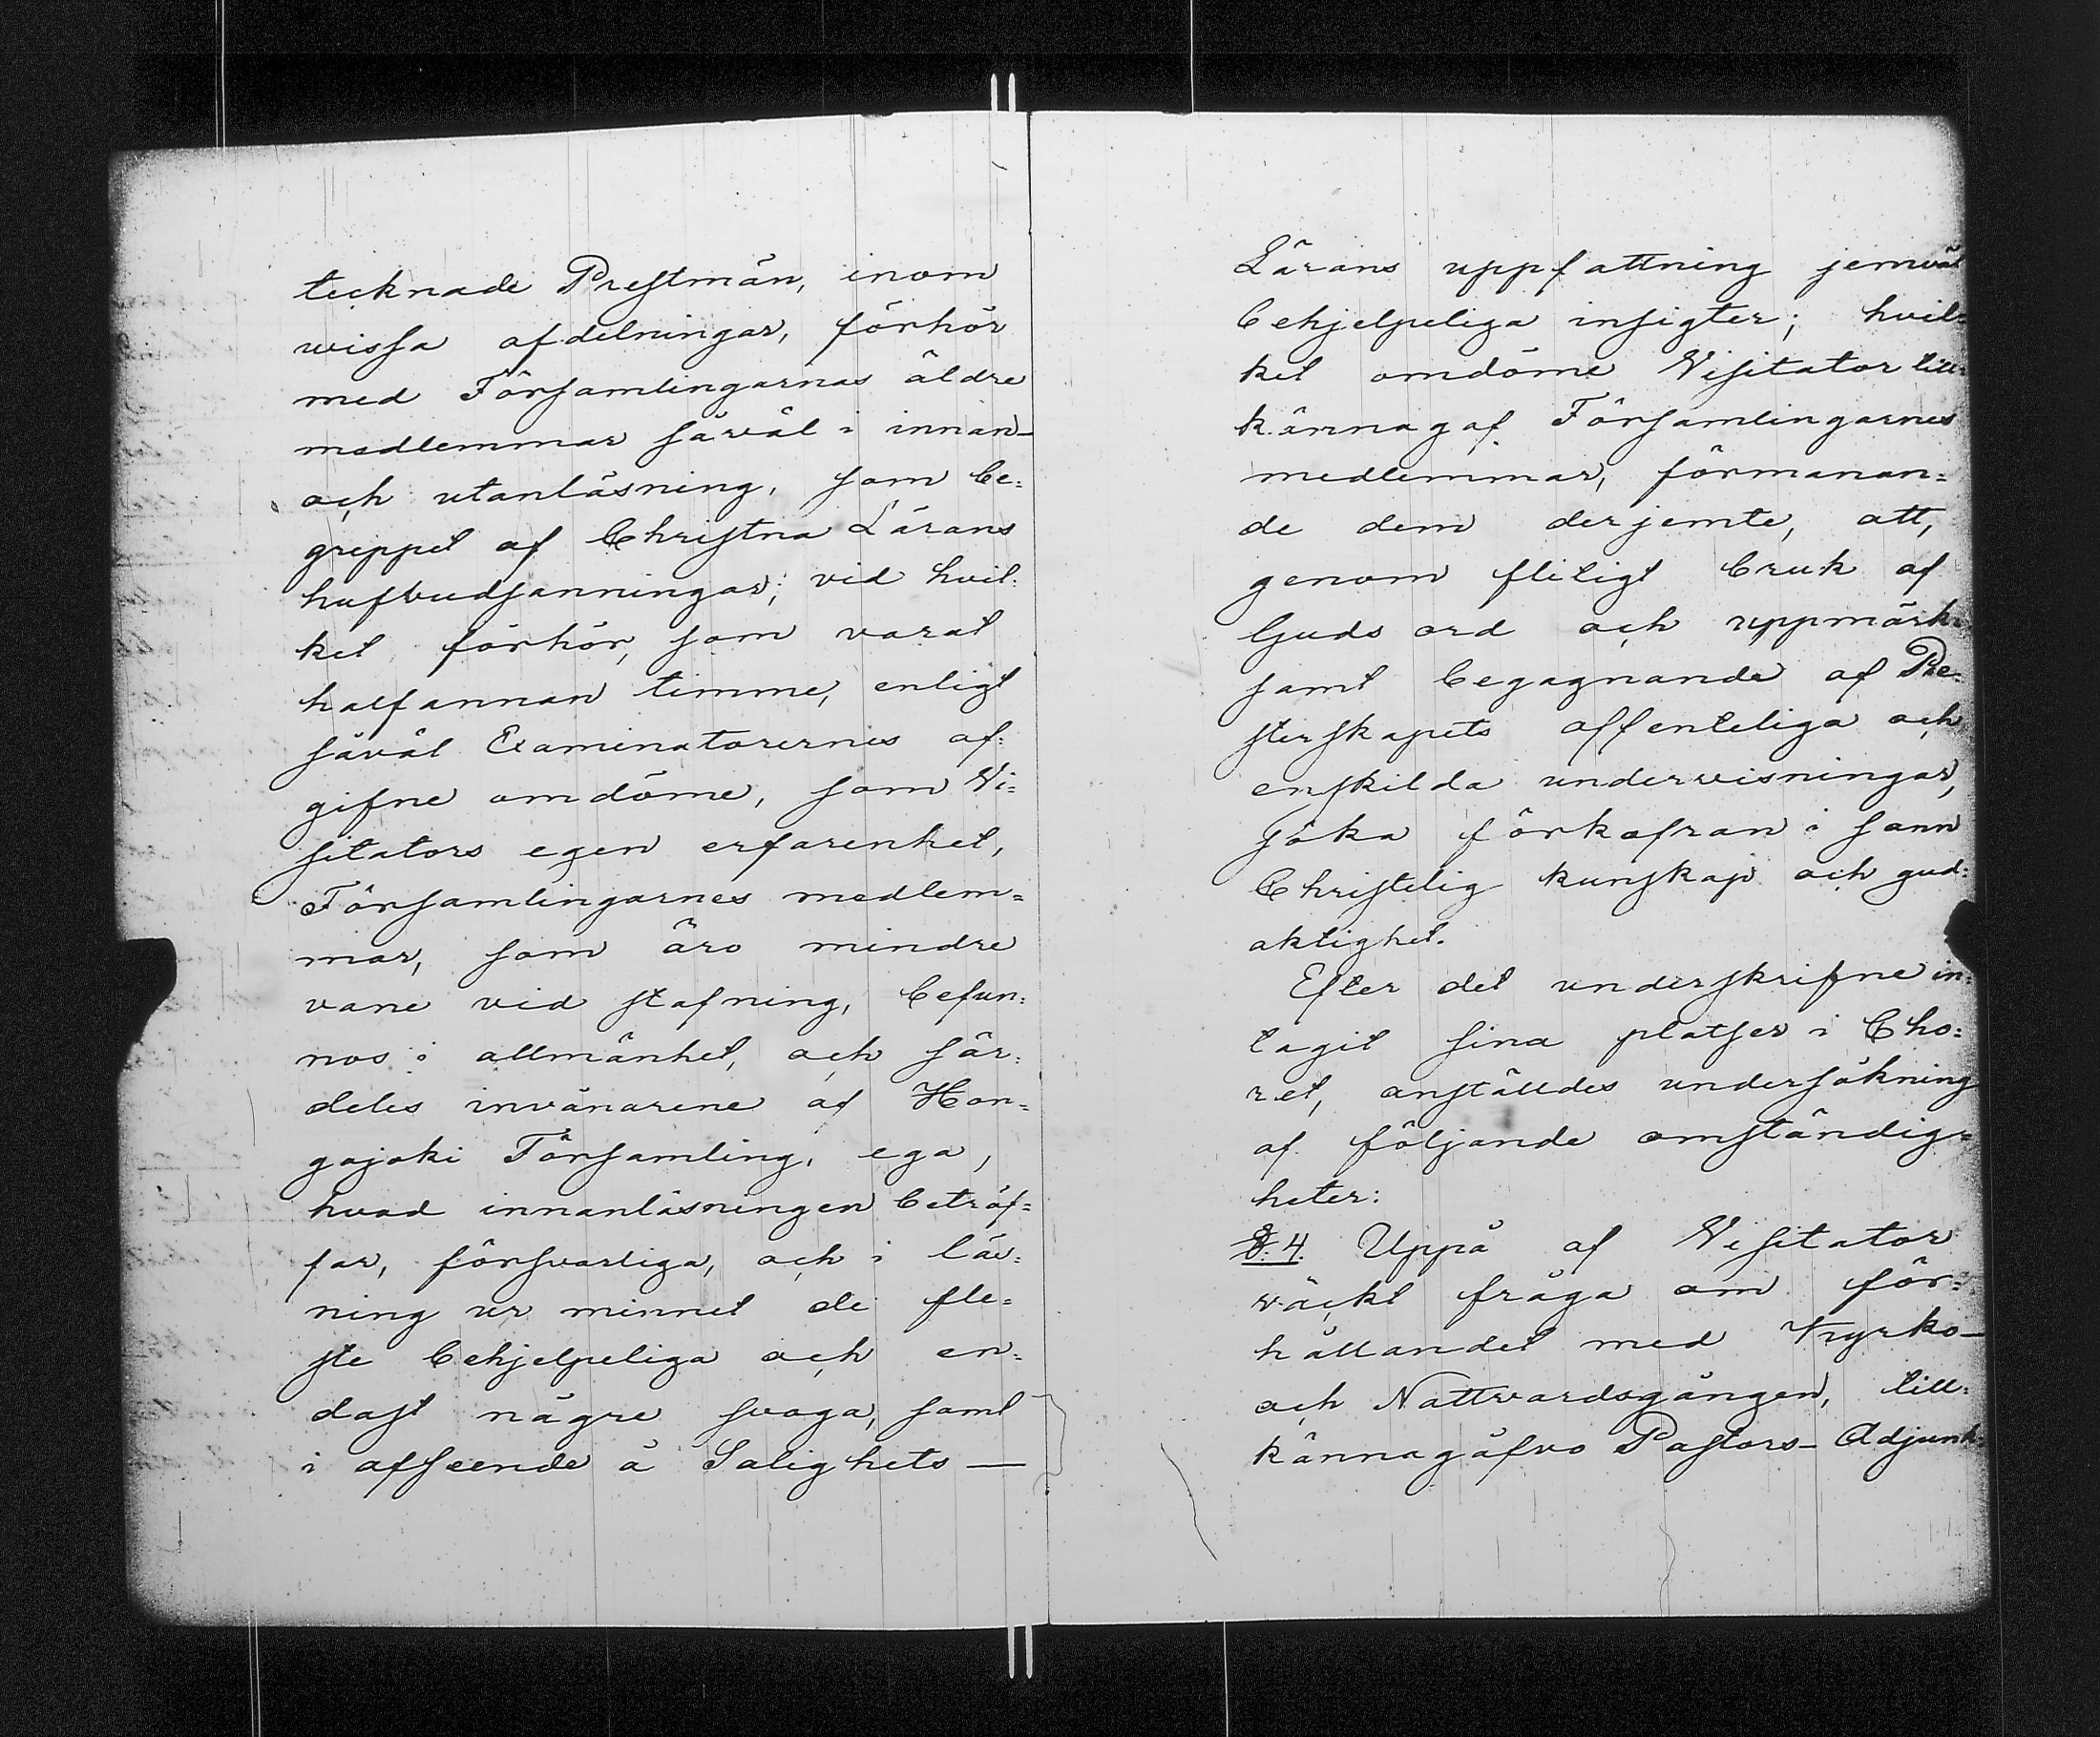 tecknade Prestmän, inom
wissa afdelningar, förhör
med Församlingarnas äldre
medlemmar såväl i innan-
och utanläsning, som be=
greppet af Christna Lärans
hufvudsanningar; vid hvil=
ket förhör, som varat
halfannan timme, enligt
såväl Examinatorernes af=
gifne omdöme, som Vi=
sitators egen erfarenhet,
Församlingarnes medlem=
mar, som äro mindre
vane vid stafning, befun=
nos i allmänhet, och sär=
deles invånarene af Hon=
gojoki Församling, ega,
hvad innanläsningen beträf=
far, försvarliga, och i läs=
ning ur minnet de fle=
ste behjelpeliga och en=
dast någre svaga, samt
i afseende å Salighets—
Lärans uppfattning jemväl
behjelpeliga insigter; hvil=
ket omdöme Visitator till=
kännagaf Församlingarnes
medlemmar, förmanan=
de dem derjemte, att,
genom fliligt bruk af
Guds ord och uppmärk=
samt begagnande af Pre=
sterskapets offenteliga och
enskilda undervisningar,
söka förkofran i sann
Christelig kunskap och gud=
aktighet.
Efter det underskrifne in=
tagit sina platser i Cho=
ret, anställdes undersökning
af följande omständig=
heter:
§. 4. Uppå af Visitator
väckt fråga om för=
hållandet med Kyrko-
och Nattvardsgången, till=
kännagåfvo Pastors-Adjunk=